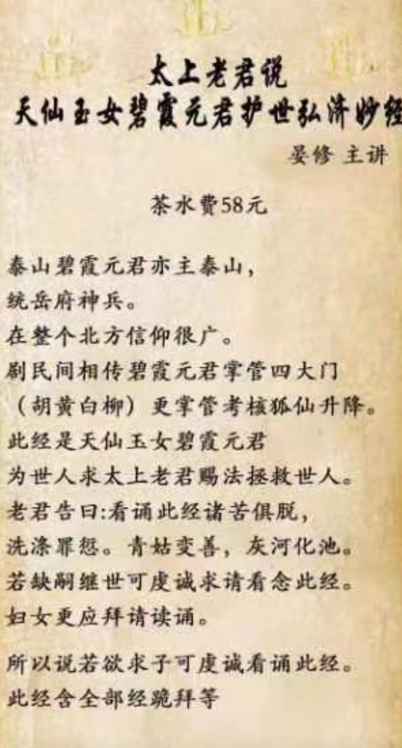 太上老君说
天仙玉女碧霞元君护世弘济妙经
晏修 主讲
茶水费58元
泰山碧霞元君亦主泰山，
统岳府神兵。
在整个北方信仰很广。
剧民间相传碧霞元君掌管四大门
（胡黄白柳）更掌管考核狐仙升降。
此经是天仙玉女碧霞元君
为世人求太上老君赐法拯救世人。
老君告曰:看诵此经诸苦俱脱，
洗涤罪愆。青姑变善，灰河化池。
若缺嗣继世可虔诚求请看念此经。
妇女更应拜请读诵。
所以说若欲求子可虔诚看诵此经。
此经含全部经跪拜等